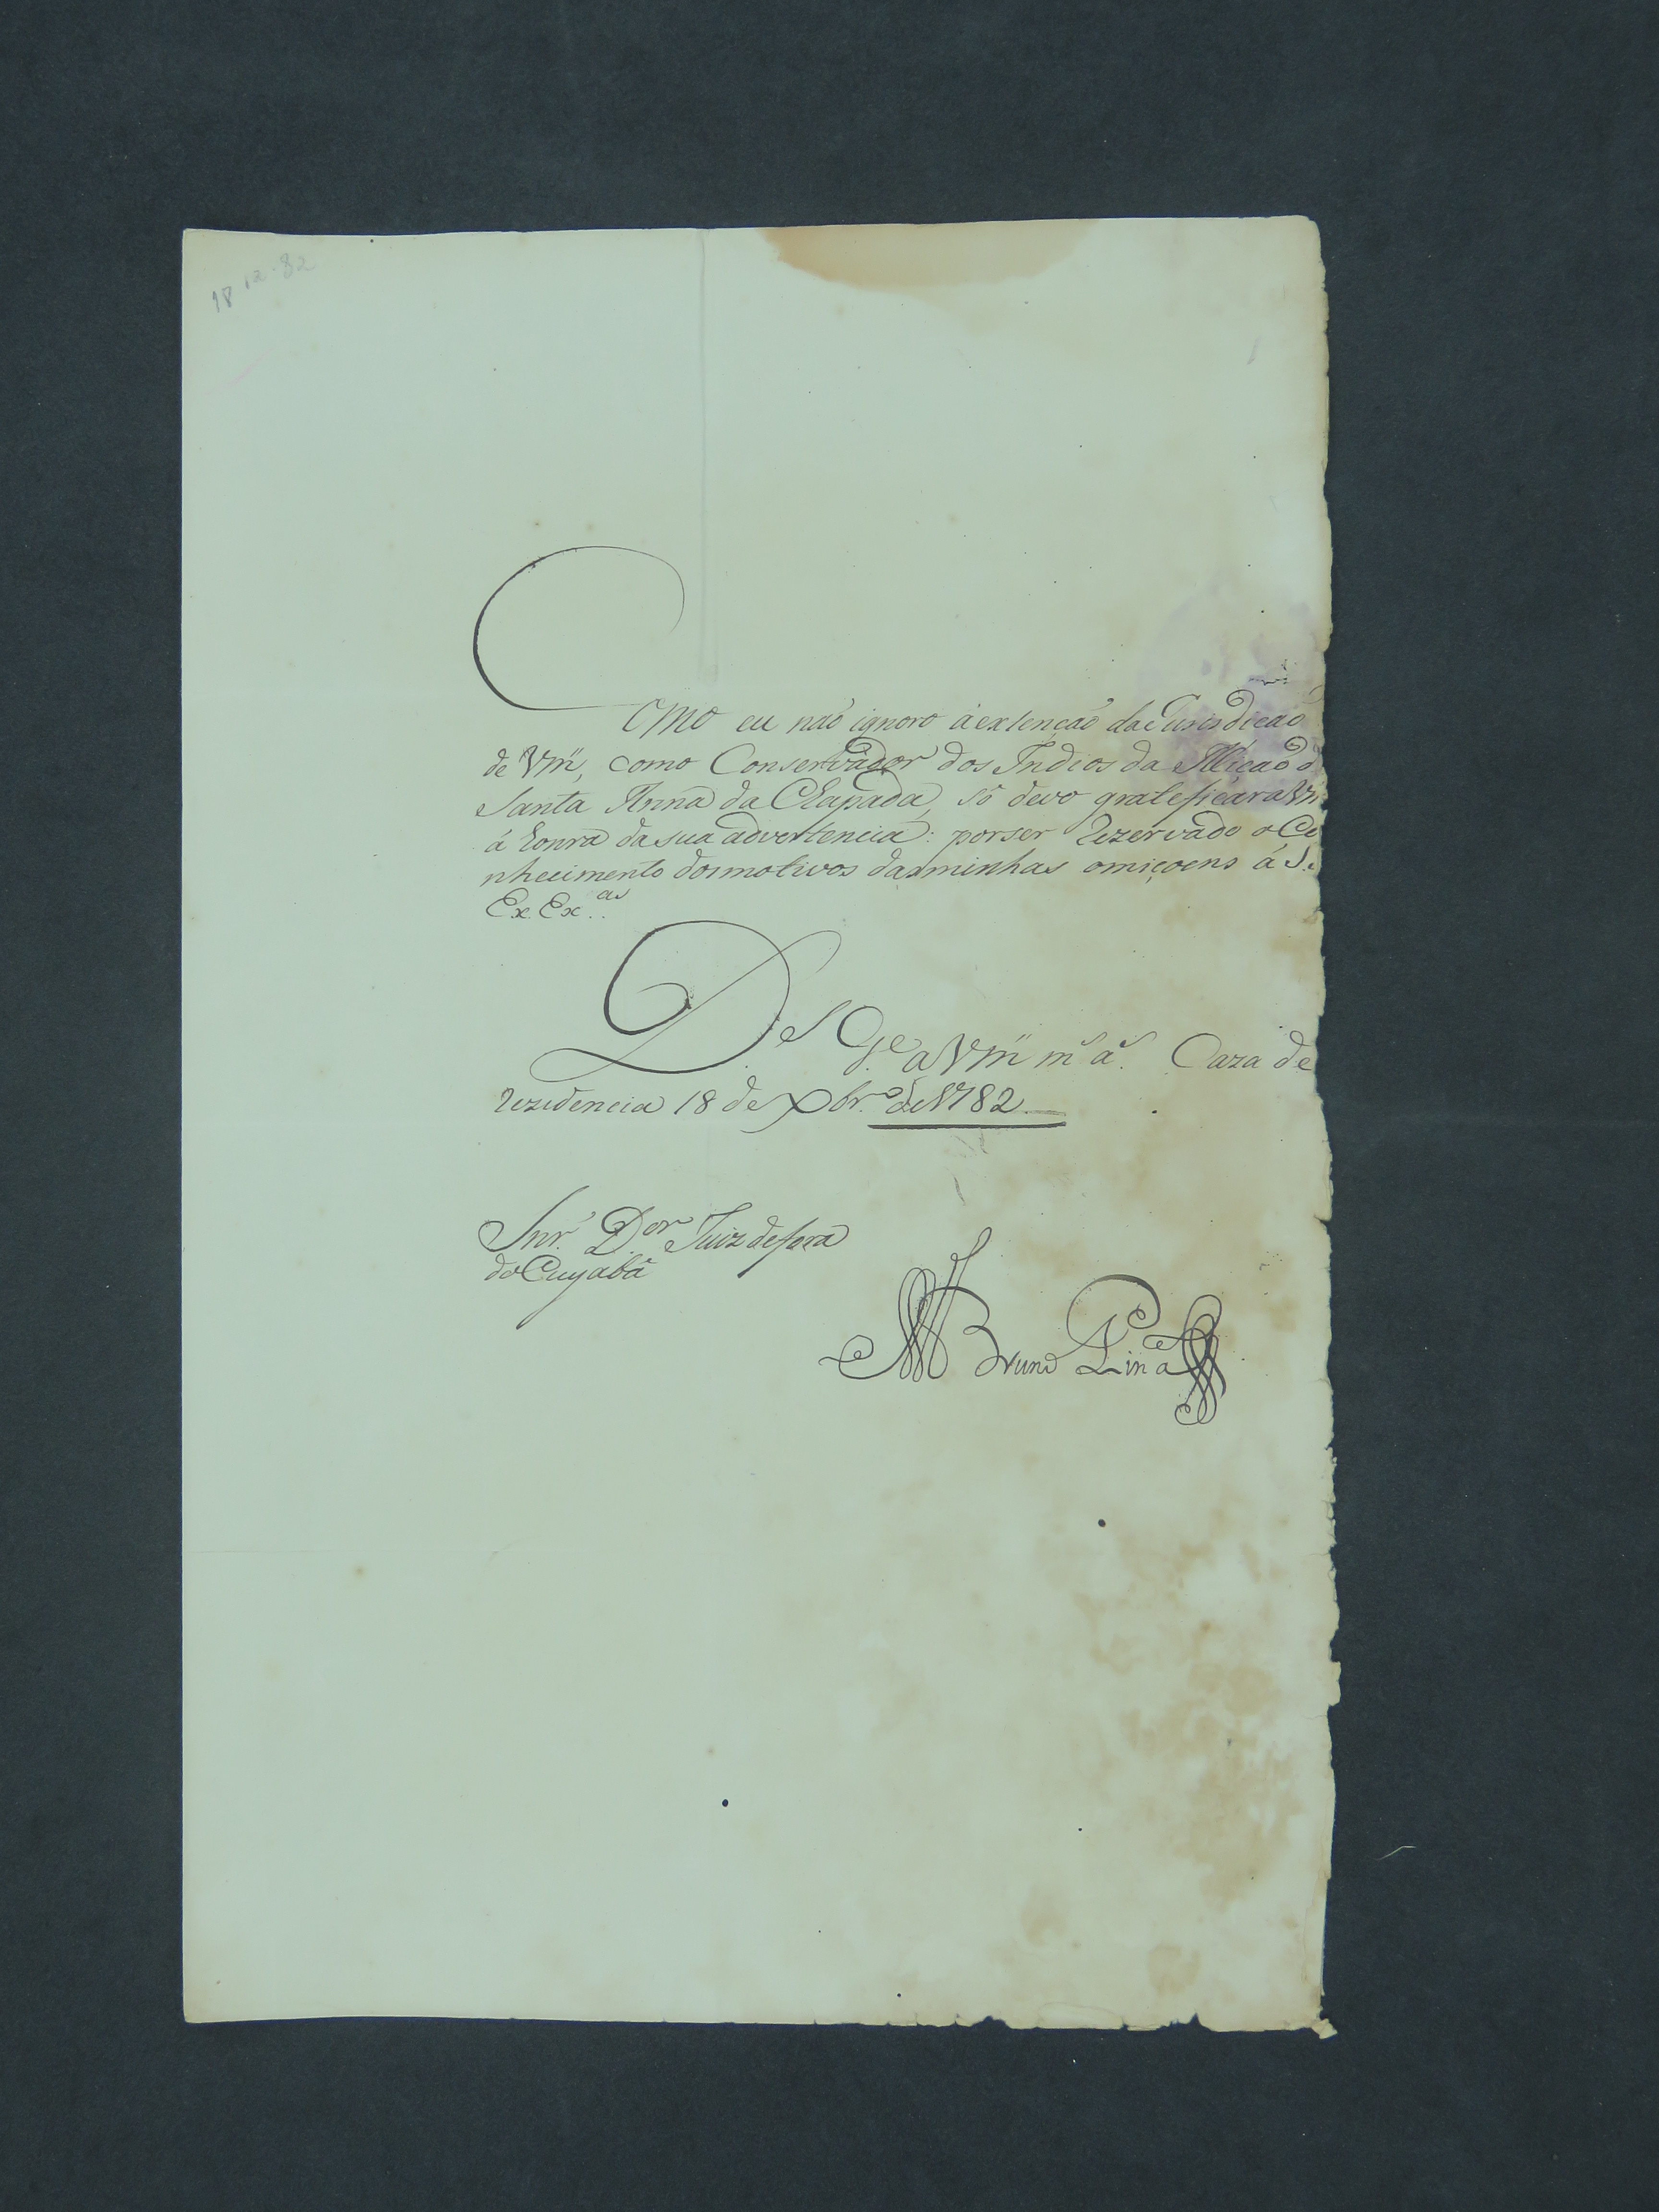 18 12-82
COMO eu naõ ignoro á extençaõ da Jurisdicaõ
de Vm.ce, como Conservador dos Indios da Micaõ d
Santa Anna da Chapada, só devo grateficar a Vm
á honra da sua advertencia: por ser Rezervado o Co
nhecimento dos motivos das minhas omiçoens á S.
Ex. Ex.as
D.s G.e a Vm.ce m.s a.s Caza de
Rezidencia 18 de Xbr.o de 1782
Snr. D.or Juiz de fora
do Cuyabá
Bruno Pina